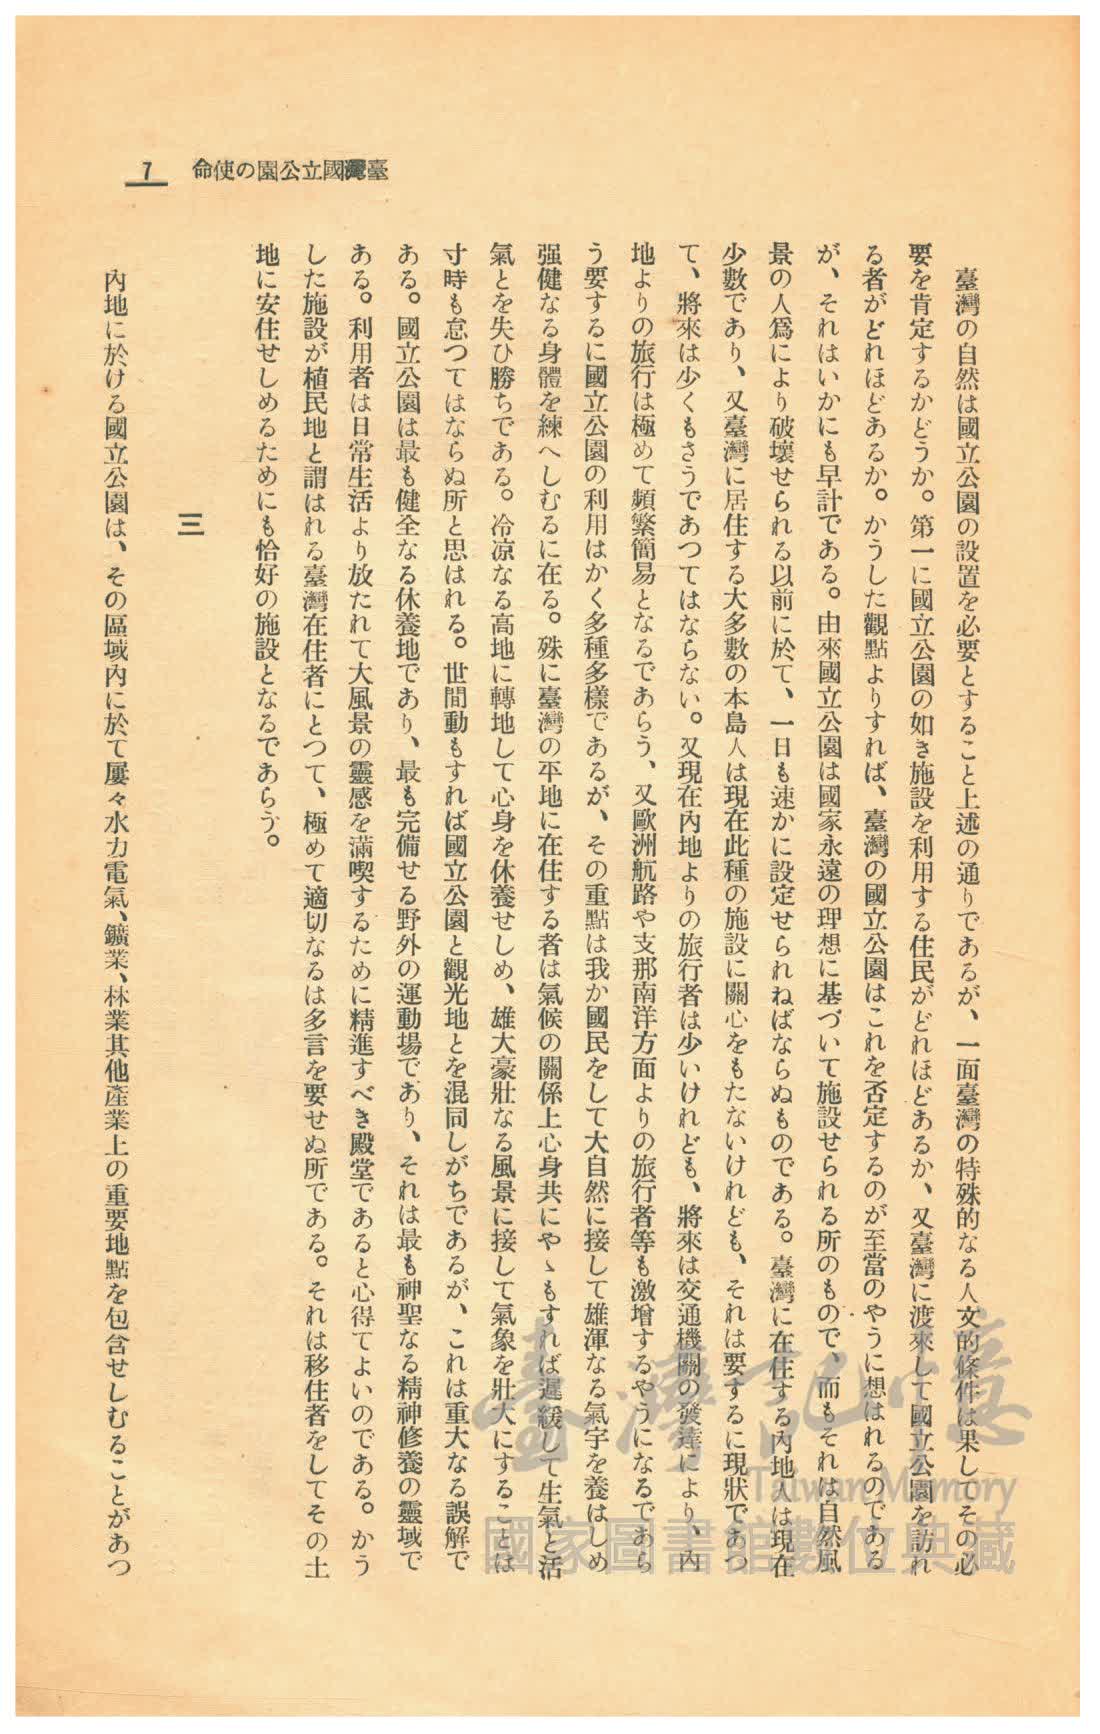 臺灣國立公園の使命
7
臺灣の自然は國立公園の設置を必要とすること上述の通りであるが、一面臺灣の特殊的なる人文的條件は果してその必
要を肯定するかどうか。第一に國立公園の如き施設を利用する住民がどれほどあるか、又臺灣に渡來して國立公園を訪れ
る者がどれほどあるか。かうした觀點よりすれば、臺灣の國立公園はこれを否定するのが至當のやうに想はれるのである
が、それはいかにも早計である。由來國立公園は國家永遠の理想に基づいて施設せられる所のもので、而もそれは自然風
景の人爲により破壞せられる以前に於て、一日も速かに設定せられねばならぬものである。臺灣に在住する內地人は現在
少數であり、又臺灣に居住する大多數の本島人は現在此種の施設に關心をもたないけれども、それは要するに現狀であつ
て、將來は少くもさうであつてはならない。又現在內地よりの旅行者は少いけれども、將來は交通機關の發達により、內
地よりの旅行は極めて頻繁簡易となるであらう、又歐洲航路や支那南洋方面よりの旅行者等も激增するやうになるであら
う要するに國立公園の利用はかく多種多樣であるが、その重點は我か國民をして大自然に接して雄渾なる氣宇を養はしめ
强健なる身體を練へしむるに在る。殊に臺灣の平地に在住する者は氣候の關係上心身共にやゝもすれば遲緩して生氣と活
氣とを失ひ勝ちである。冷凉なる高地に轉地して心身を休養せしめ、雄大豪壯なる風景に接して氣象を壯大にすることは
寸時も怠つてはならぬ所と思はれる。世間動もすれば國立公園と觀光地とを混同しがちであるが、これは重大なる誤解で
ある。國立公園は最も健全なる休養地であり、最も完備せる野外の運動場であり、それは最も神聖なる精神修養の靈域で
ある。利用者は日常生活より放たれて大風景の靈感を滿喫するために精進すべき殿堂であると心得てよいのである。かう
した施設が植民地と謂はれる臺灣在住者にとつて、極めて適切なるは多言を要せぬ所である。それは移住者をしてその土
地に安住せしめるためにも恰好の施設となるであらう。
三
內地に於ける國立公園は、その區域內に於て屢々水力電氣、鑛業、林業其他產業上の重要地點を包含せしむることがあつ
臺灣記憶
Taiwan Memory
國家圖書館數位典藏